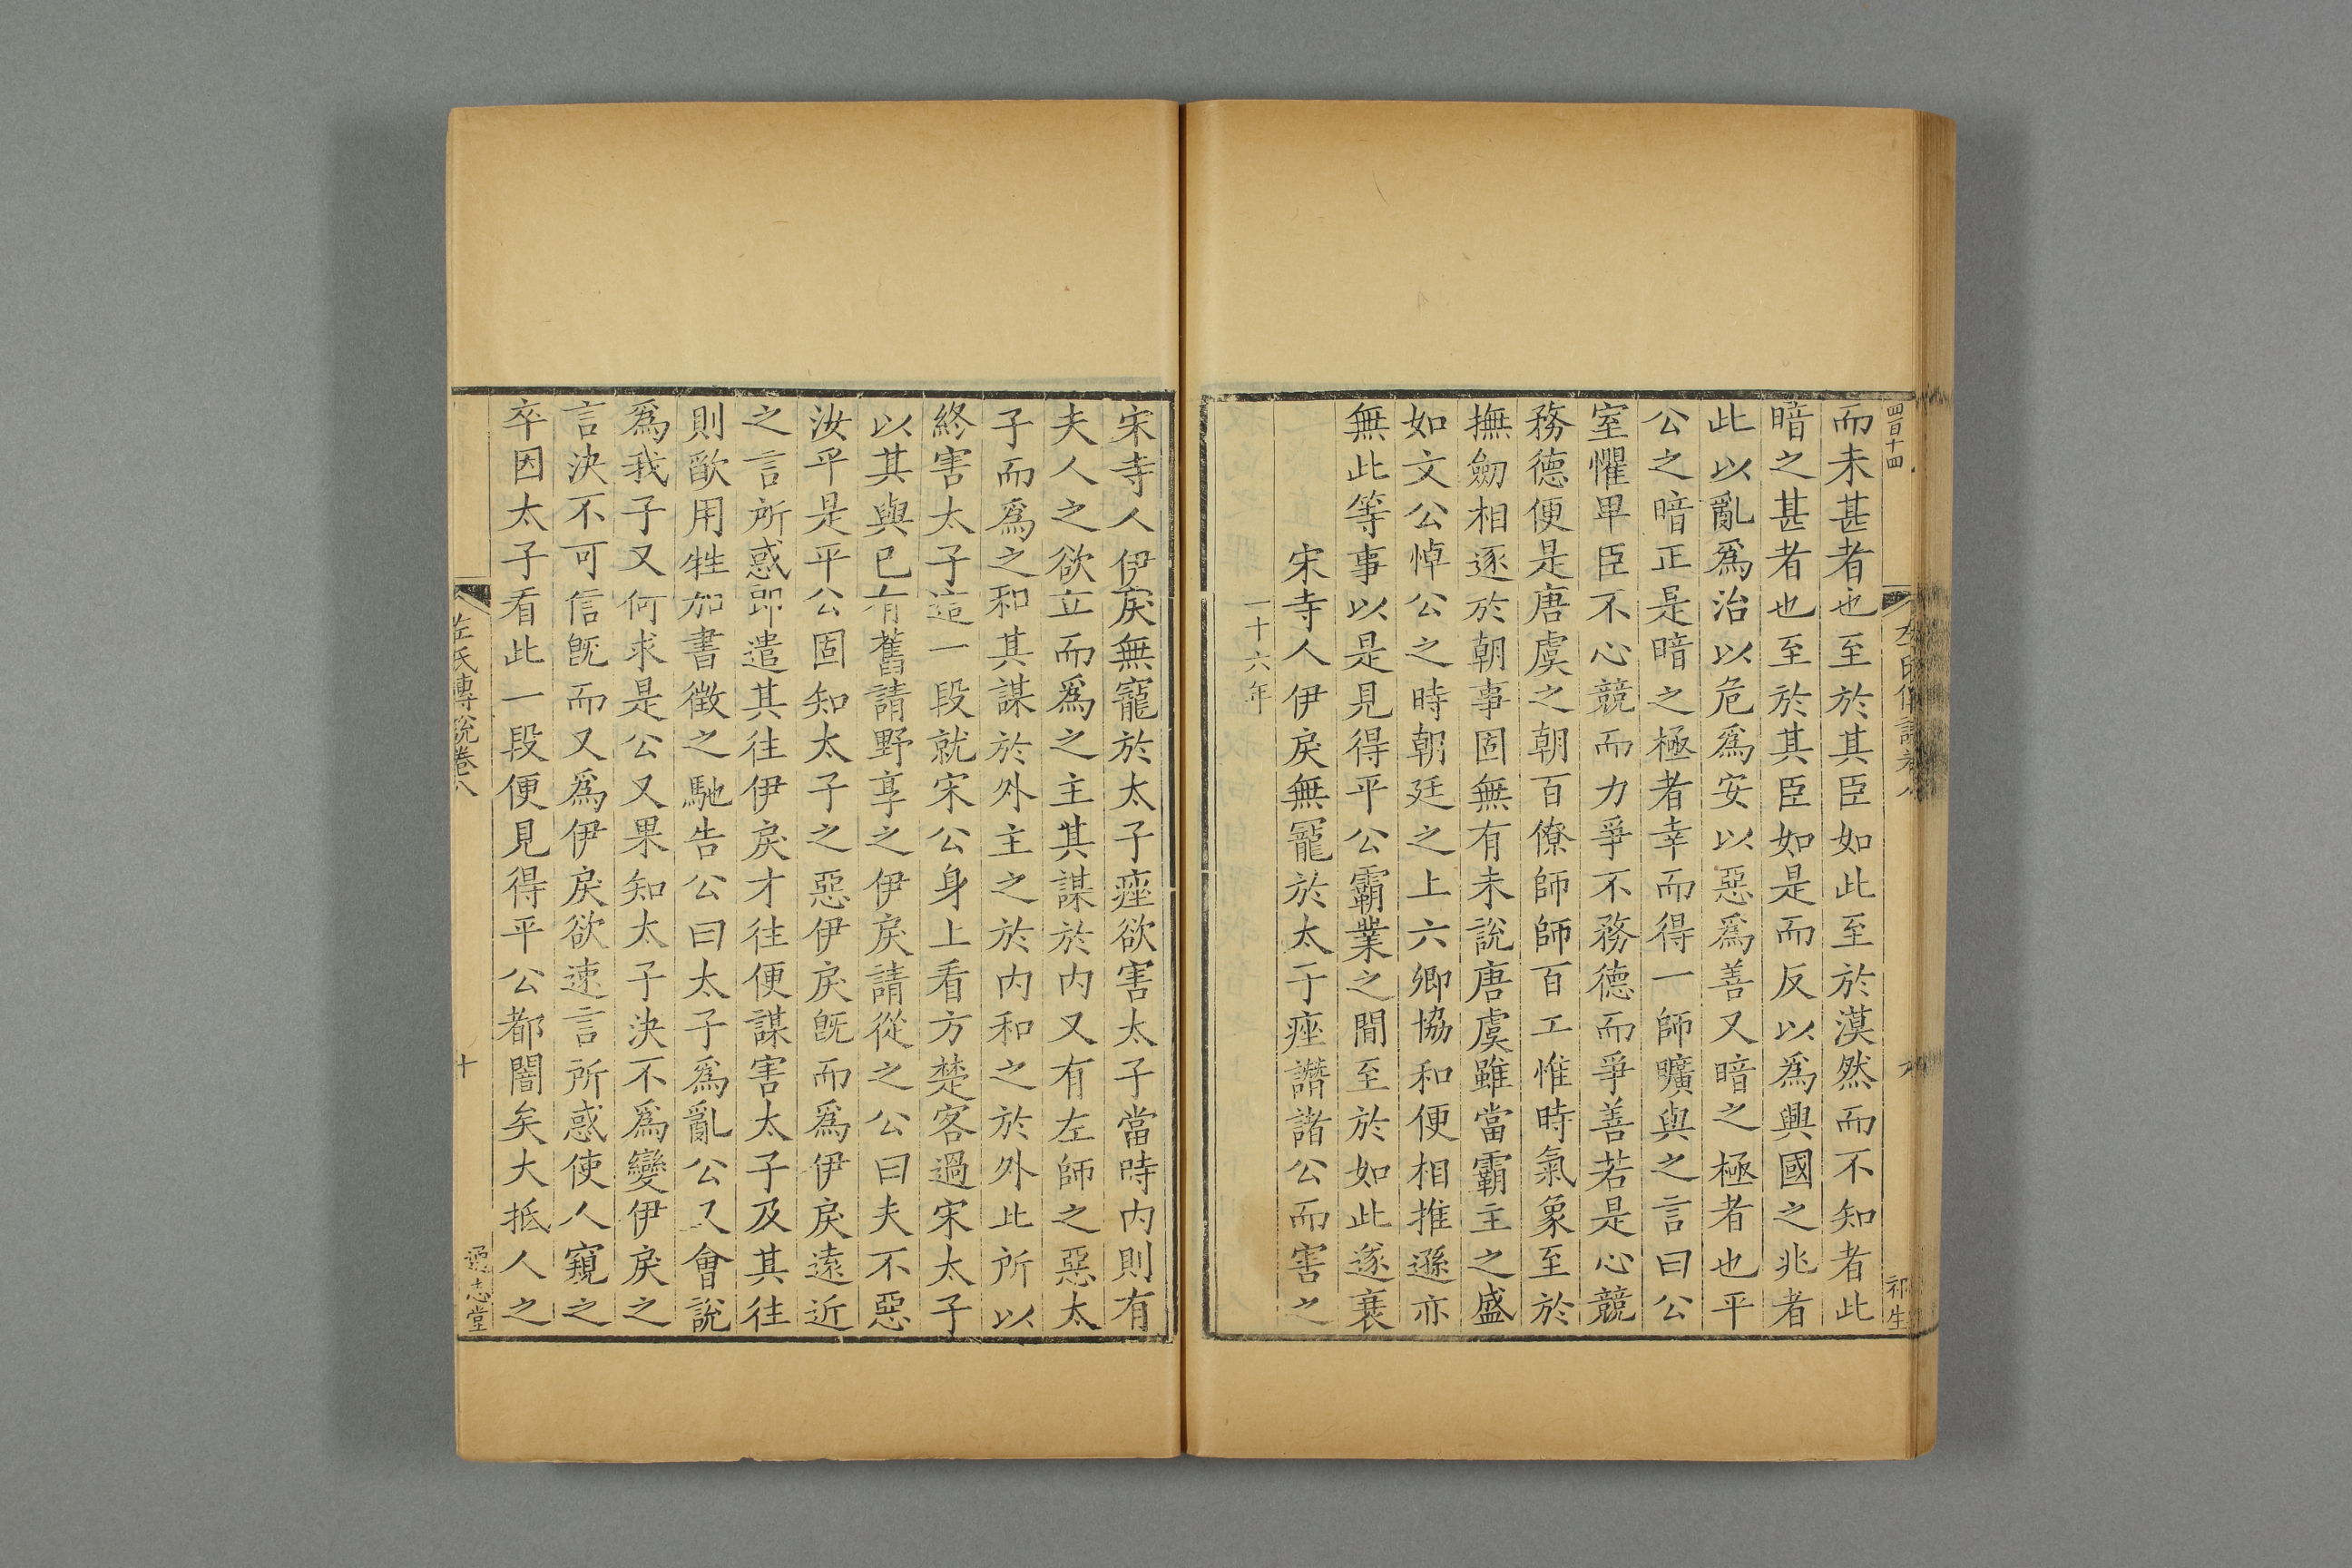 四百十四
左氏傳說卷八
九
祁生
而未甚者也至於其臣如此至於漠然而不知者此
暗之甚者也至於其臣如是而反以爲興國之兆者
此以亂爲治以危爲安以惡爲善又暗之極者也平
公之暗正是暗之極者幸而得一師曠與之言曰公
室懼卑臣不心競而力爭不務德而爭善若是心競
務德便是唐虞之朝百僚師師百工惟時氣象至於
撫劒相逐於朝事固無有未說唐虞雖當霸主之盛
如文公悼公之時朝廷之上六卿協和便相推遜亦
無此等事以是見得平公霸業之間至於如此遂衰
宋寺人伊戾無寵於太子痤譖諸公而害之
二十六年
宋寺人伊戾無寵於太子痤欲害太子當時内則有
夫人之欲立而爲之主其謀於内又有左師之惡太
子而爲之和其謀於外主之於内和之於外此所以
終害太子這一段就宋公身上看方楚客過宋太子
以其與已有舊請野享之伊戾請從之公曰夫不惡
汝乎是平公固知太子之惡伊戾旣而爲伊戾遠近
之言所惑即遣其往伊戾才往便謀害太子及其往
則歃用牲加書徵之馳告公曰太子爲亂公又會說
爲我子又何求是公又果知太子決不爲變伊戾之
言決不可信旣而又爲伊戾欲速言所惑使人窺之
卒因太子看此一段便見得平公都闇矣大抵人之
左氏傳說卷八
十
通志堂